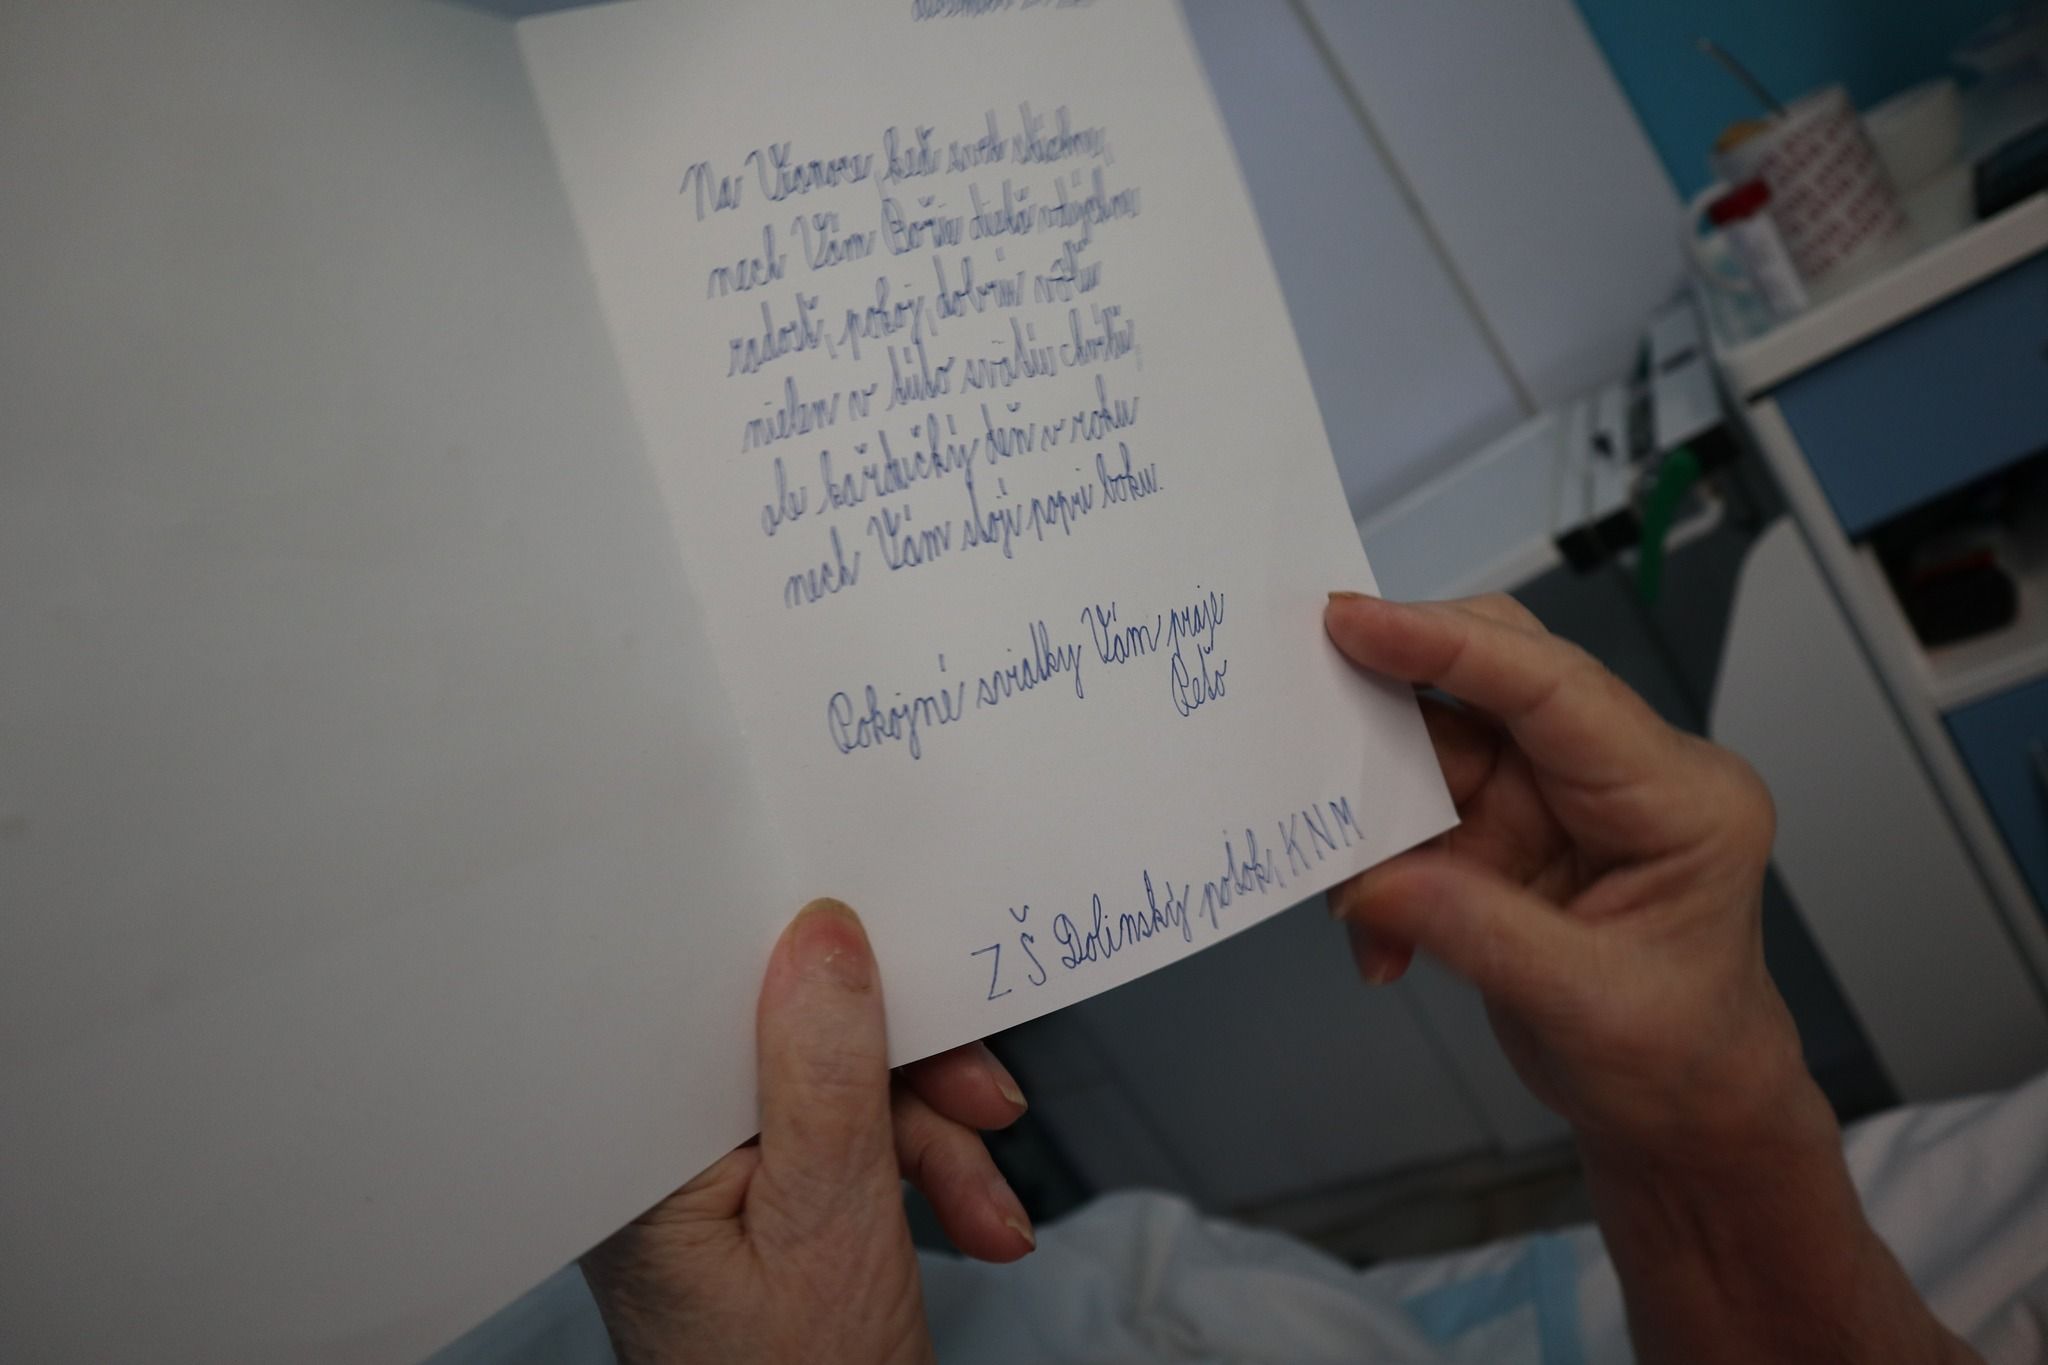 Na Vianoce, keď svet stíchne,
nech Vám Božie dieťa vdýchne
radosť, pokoj, dobrú vôľu
nielen v túto sviatiu chvíľu,
ale každučký deň v roku
nech Vám stojí popri boku.
Pokojné sviatky Vám praje
Peťo
ZŠ Dolinský potok, KNM